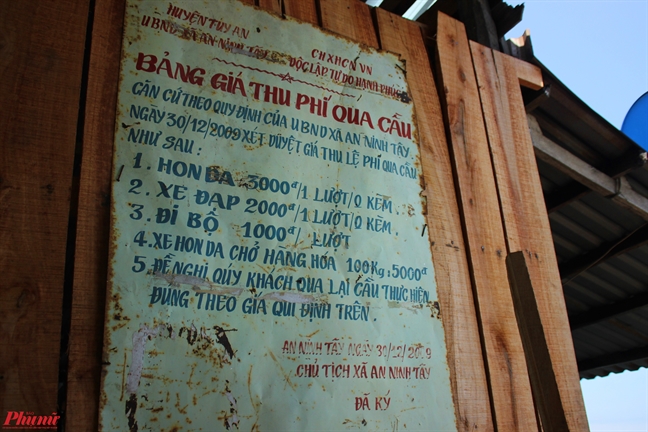 HUYỆN TUY AN
UBND XÃ AN NINH TÂY
CHXHCN VN
ĐỘC LẬP TỰ DO HẠNH PHÚC
BẢNG GIÁ THU PHÍ QUA CẦU
CĂN CỨ THEO QUY ĐỊNH CỦA UBND XÃ AN NINH TÂY
NGÀY 30/12/2009 XÉT DUYỆT GIÁ THU LỆ PHÍ QUA CẦU
NHƯ SAU :
1. HONDA 3000đ/1 LƯỢT/0 KẼM.
2. XE ĐẠP 2000đ/1 LƯỢT/0 KẼM.
3. ĐI BỘ 1000đ/ LƯỢT
4. XE HONDA CHỞ HÀNG HÓA 100Kg: 5000đ
5. ĐỀ NGHỊ QÚY KHÁCH QUA LẠI CẦU THỰC HIỆN
ĐÚNG THEO GIÁ QUI ĐỊNH TRÊN.
AN NINH TÂY NGÀY 30/12/2009
CHỦ TỊCH XÃ AN NINH TÂY
ĐÃ KÝ
Phụ nữ